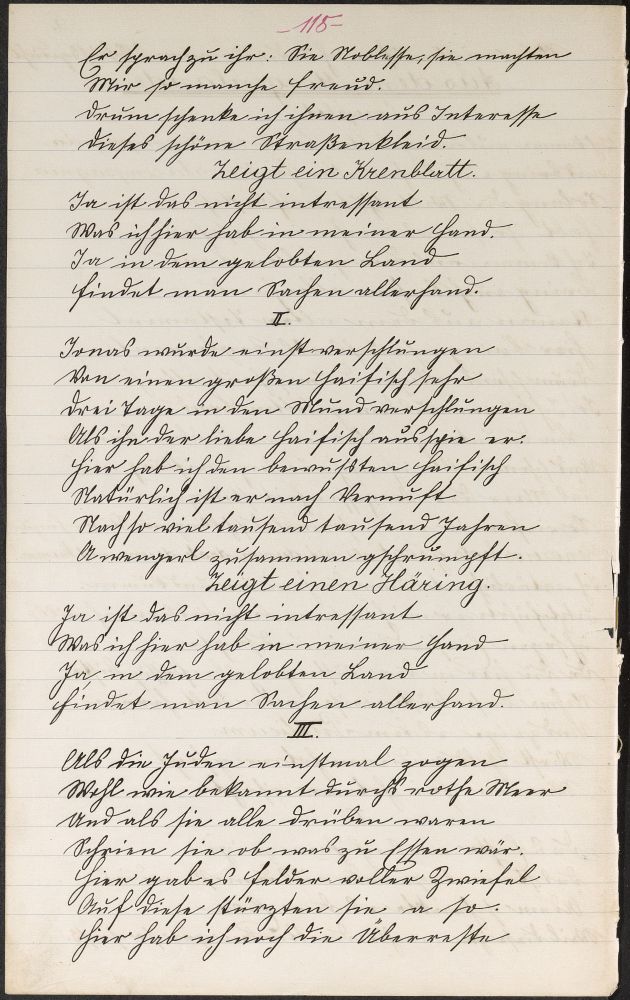 -115-
Er sprach zu ihr: Sie Noblesse, sie machten
Mir so manche Freud.
Drum schenke ich ihnen aus Interesse
Dieses schöne Straßenkleid.
Zeigt ein Krenblatt.
Ja ist das nicht intressant
Was ich hier hab in meiner Hand.
Ja in dem gelobten Land
Findet man Sachen allerhand.
II.
Jonas wurde einst verschlungen
Von einen großen Haifisch sehr
Drei Tage in den Mund verschlungen
Als ihn der liebe Haifisch ausspie er.
Hier hab ich den bewußten Haifisch
Natürlich ist er nach Vernuft
Nach so viel tausend tausend Jahren
A wengerl zusammen gschrumpft.
Zeigt einen Häring.
Ja ist das nicht intressant
Was ich hier hab in meiner Hand
Ja in dem gelobten Land
Findet man Sachen allerhand.
III.
Als die Juden einstmal zogen
Wohl wie bekannt durch's rothe Meer
Und als sie alle drüben waren
Schrien sie ob was zu Essen wär.
Hier gab es Felder voller Zwiefel
Auf diese stürzten sie a so.
Hier hab ich noch die Überreste